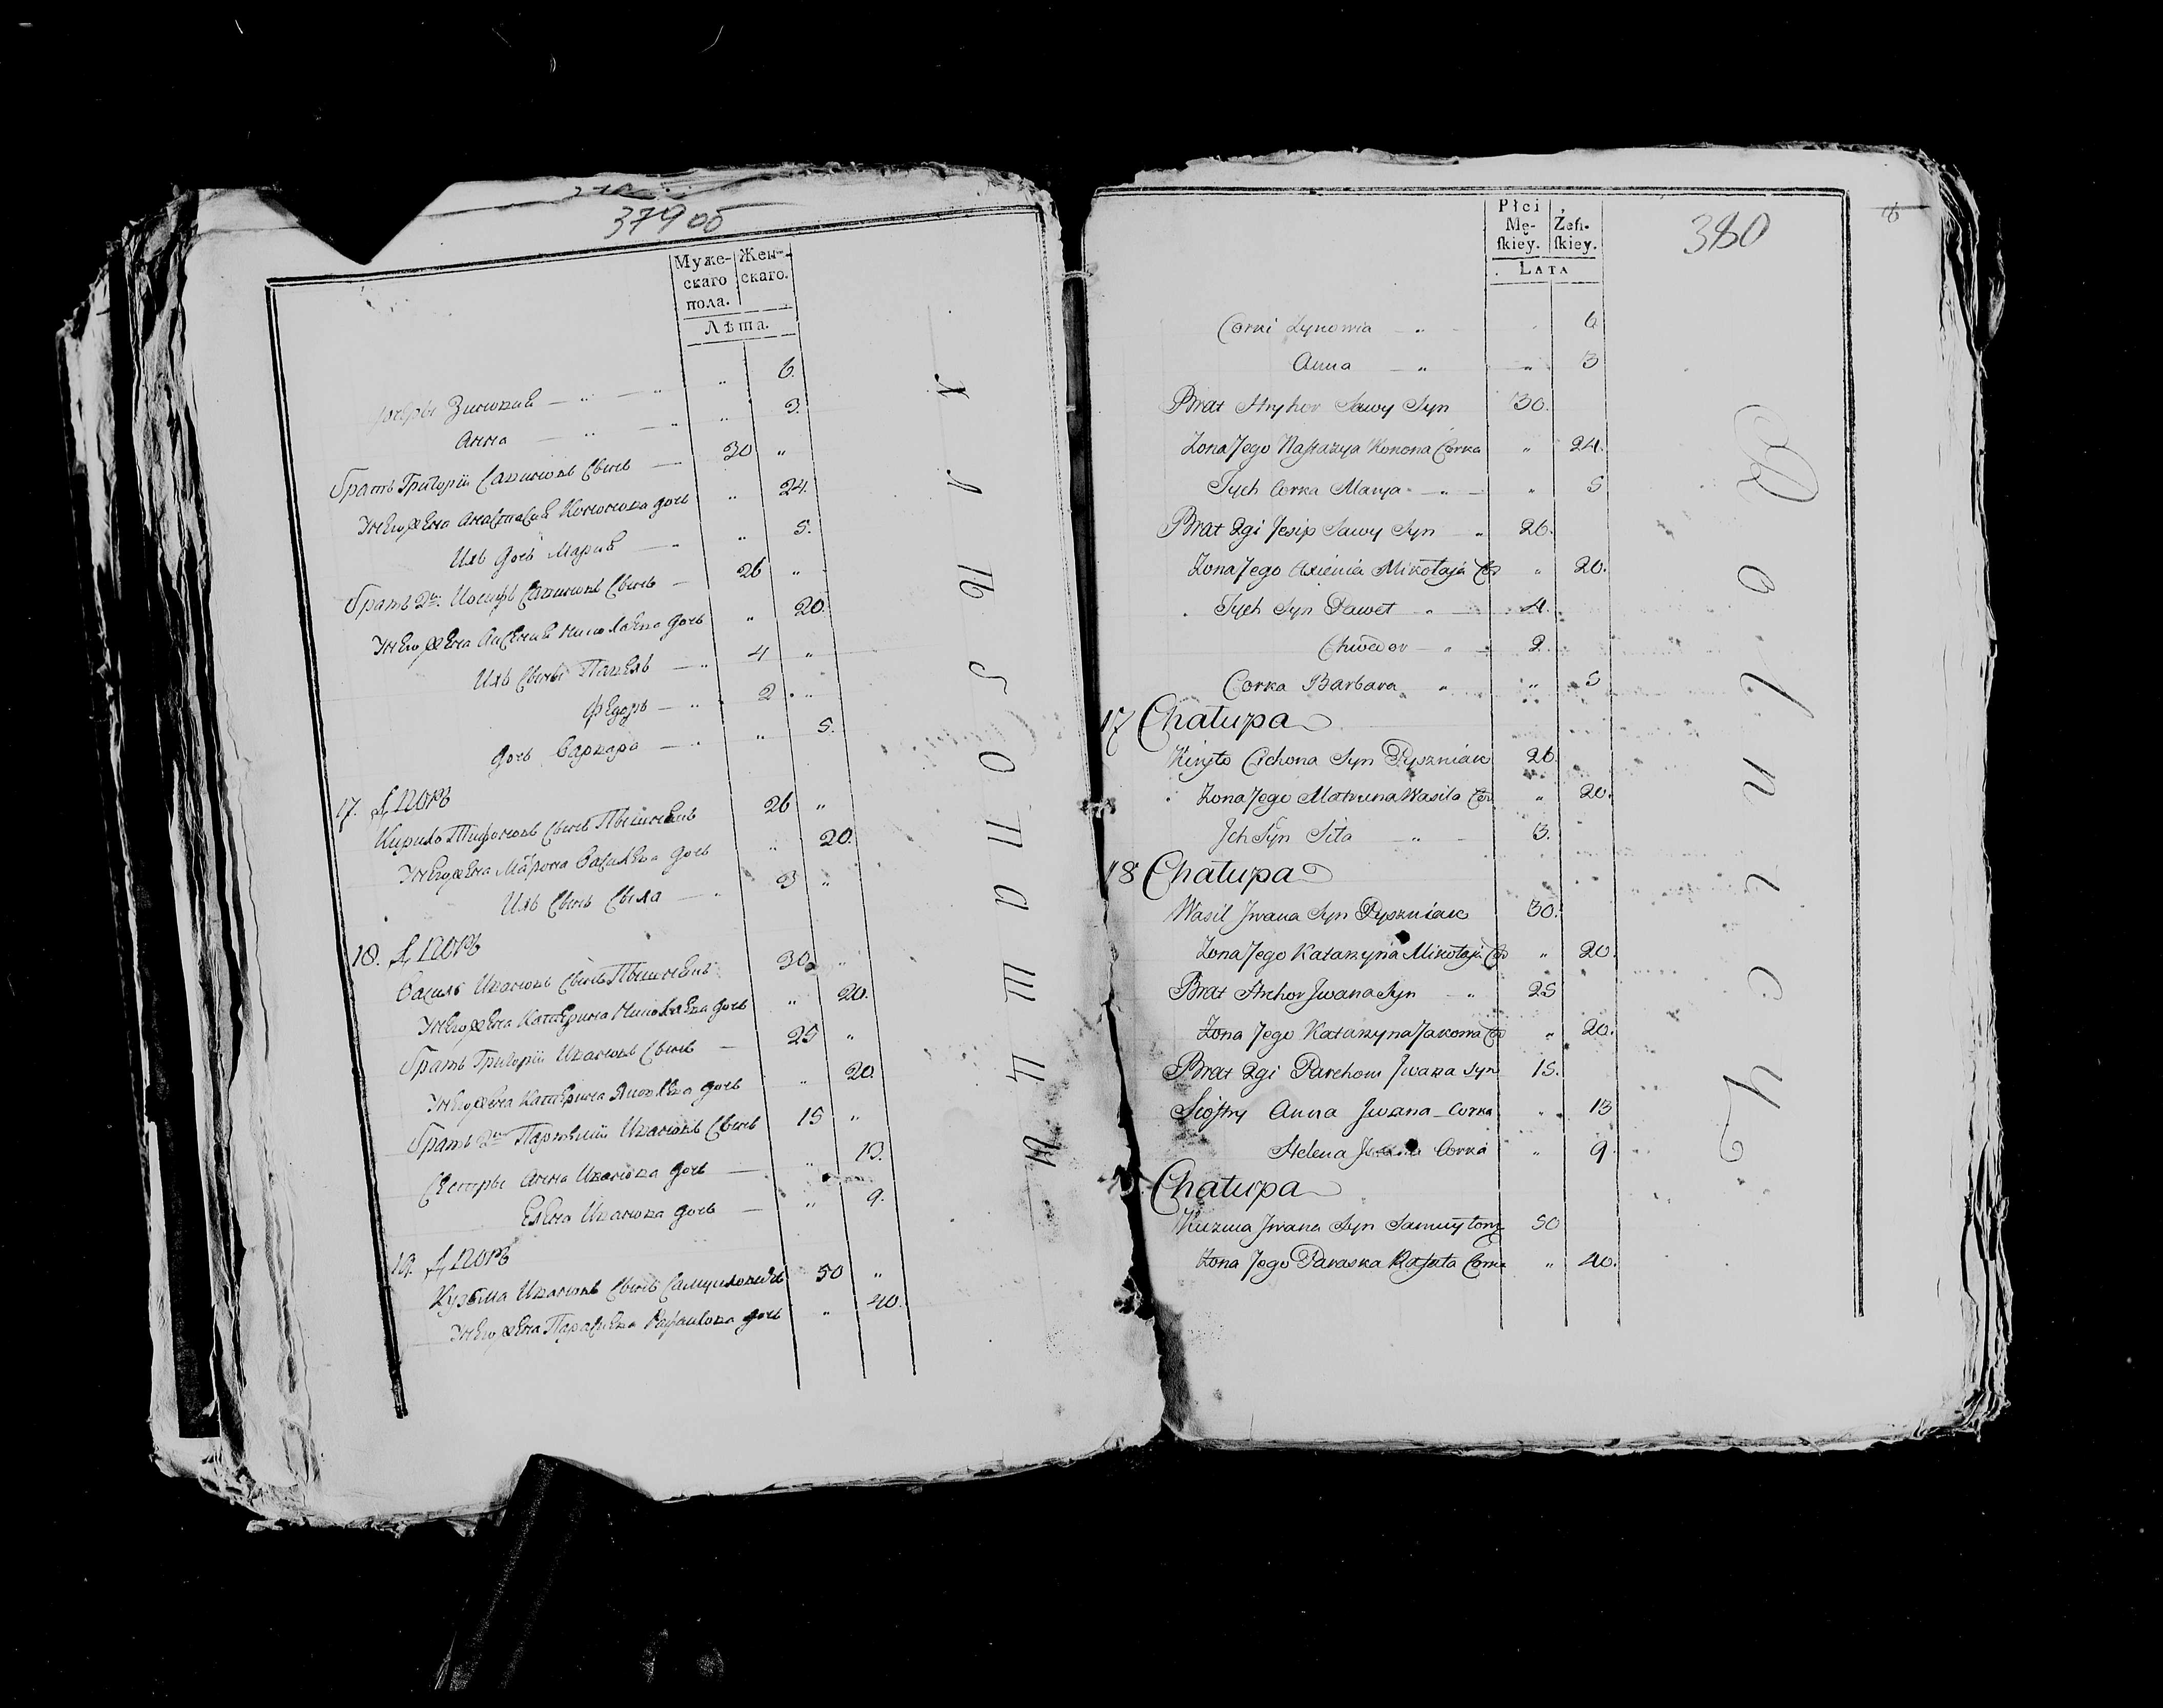 379 об
Муже-
скаго
пола.
Жен-
скаго.
Лѣта.
дочеры Зиновия — „ — „ „ 6.
Анна — „ — „ „ 3.
братъ Григорій Савиновъ сынъ — 30 „
у него жена Анастасия Кононова дочь „ 24.
ихъ дочь Мария — „ „ 5.
братъ 2й. Иосифъ Савиновъ сынъ — 26 „
у него жена Аксения Николаева дочь „ 20.
ихъ сыны Павелъ — „ 4 „
Федоръ — „ 2 „
дочь Варвара — „ „ 5.
17. Дворъ
Кирило Тифоновъ сынъ 26 „
у него жена Матрона Василева дочь „ 20.
ихъ сынъ Сыла — „ 3 „
18. Дворъ
Василь Ивановъ сынъ 30 „
у него жена Катерина Николаева дочь „ 20.
братъ Григорій Ивановъ сынъ — 25 „
у него жена Катерина Яковлева дочь „ 20.
братъ 2й Парфений Ивановъ сынъ 15 „
сестры Анна Иванова дочь — „ 13.
Елена Иванова дочь — „ 9.
19. Дворъ
Кузьма Ивановъ сынъ Самуиловичъ 50 „
у него жена Парасьева Рафаилова дочь „ 40.
Хлѣбопашцы
380
Płci
Mę-
ſkiey.
Żeń-
ſkiey.
LATA
Corki Zynowia — „ 6
Anna — „ „ 3
Brat Hryhor Sawy Syn 30.
Zona Jego Nastazya Konona Corka „ 24.
Tych Corka Marya — „ — „ 5
Brat 2gi Jesip Sawy Syn „ 26.
Zona Jego Axienia Mikołaja Cor „ 20.
Tych Syn Paweł „ — 4.
Chwedor — „ — 2.
Corka Barbara „ „ 5
17 Chałupa
Kiryło Cichona Syn Pyszniak 26
Zona Jego Matruna Wasila Cor „ 20.
Jch Syn Siła — „ — 3.
18 Chałupa
Wasil Jwana Syn Pyszniak 30.
Zona Jego Katarzyna Mikołaja Cor „ 20.
Brat Hrehor Jwana Syn „ 25
Zona Jego Katarzyna Jakowa Cor „ 20.
Brat 2gi Parchom Jwana Syn 15.
Siostry Anna Jwana Corka „ 13
Helena Jwana Corka „ 9
Chałupa
Kuzma Jwana Syn 50
Zona Jego Paraska Rafała Corka „ 40.
Rolnicy